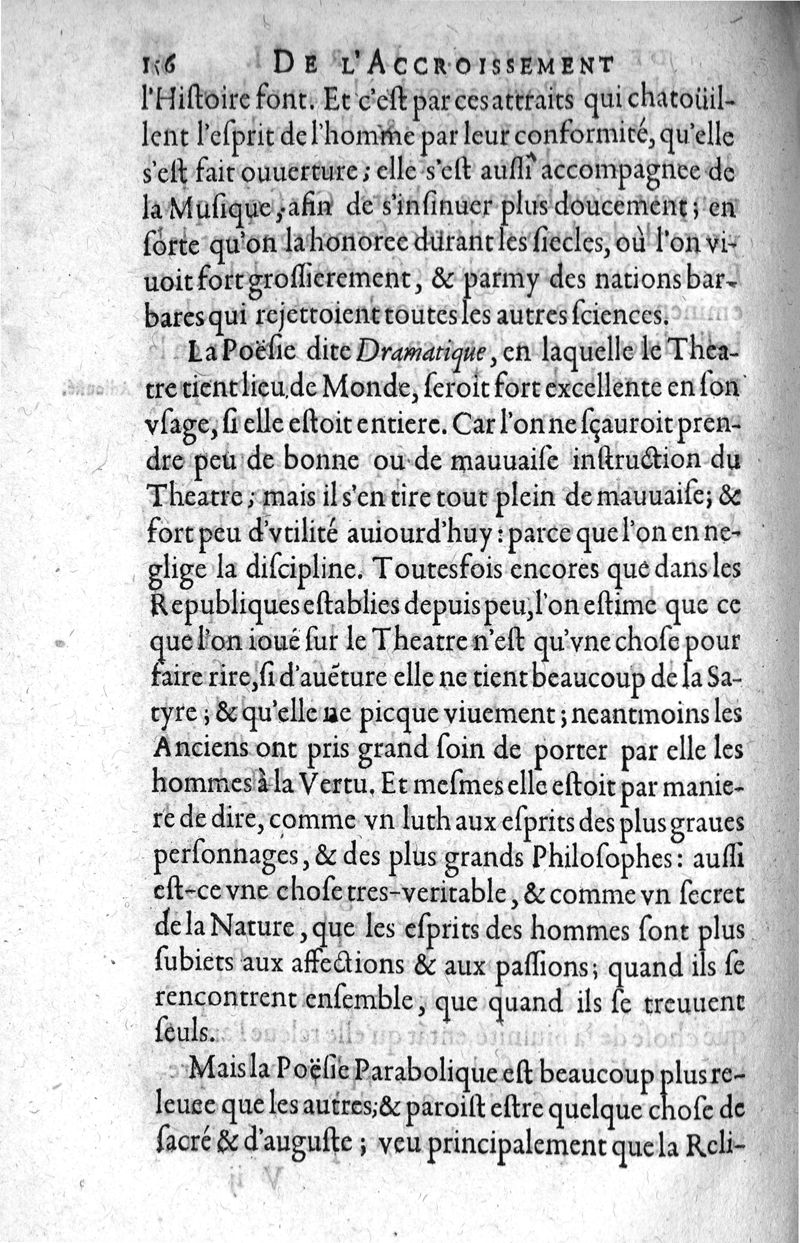 156 DE L'ACCROISSEMENT
l'Hiſtoire font. Et c'eſt par ces attraits qui chatoüil-
lent l'eſprit de l'homme par leur conformité, qu'elle
s'eſt fait ouuerture; elle s'eſt auſſi accompagnee de
la Muſique, afin de s'inſinuer plus doucement; en
ſorte qu'on la honoree durant les ſiecles, où l'on vi-
uoit fort groſſierement, & parmy des nations bar-
bares qui rejettoient toutes les autres ſciences.
La Poëſie dite Dramatique, en laquelle le Thea-
tre tient lieu de Monde, ſeroit fort excellente en ſon
vſage, ſi elle eſtoit entiere. Car l'on ne ſçauroit pren-
dre peu de bonne ou de mauuaiſe inſtruction du
Theatre; mais il s'en tire tout plein de mauuaiſe; &
fort peu d'vtilité auiourd'huy: parce que l'on en ne-
glige la diſcipline. Toutesfois encores que dans les
Republiques eſtablies depuis peu, l'on eſtime que ce
que l'on ioué ſur le Theatre n'eſt qu'vne choſe pour
faire rire, ſi d'auẽture elle ne tient beaucoup de la Sa-
tyre; & qu'elle ne picque viuement; neantmoins les
Anciens ont pris grand ſoin de porter par elle les
hommes à la Vertu. Et meſmes elle eſtoit par manie-
re de dire, comme vn luth aux eſprits des plus graues
perſonnages, & des plus grands Philoſophes: auſſi
eſt-ce vne choſe tres-veritable, & comme vn ſecret
de la Nature, que les eſprits des hommes ſont plus
ſubiets aux affections & aux paſſions; quand ils ſe
rencontrent enſemble, que quand ils ſe treuuent
ſeuls.
Mais la Poëſie Parabolique eſt beaucoup plus re-
leuee que les autres; & paroiſt eſtre quelque choſe de
ſacré & d'auguſte; veu principalement que la Reli-